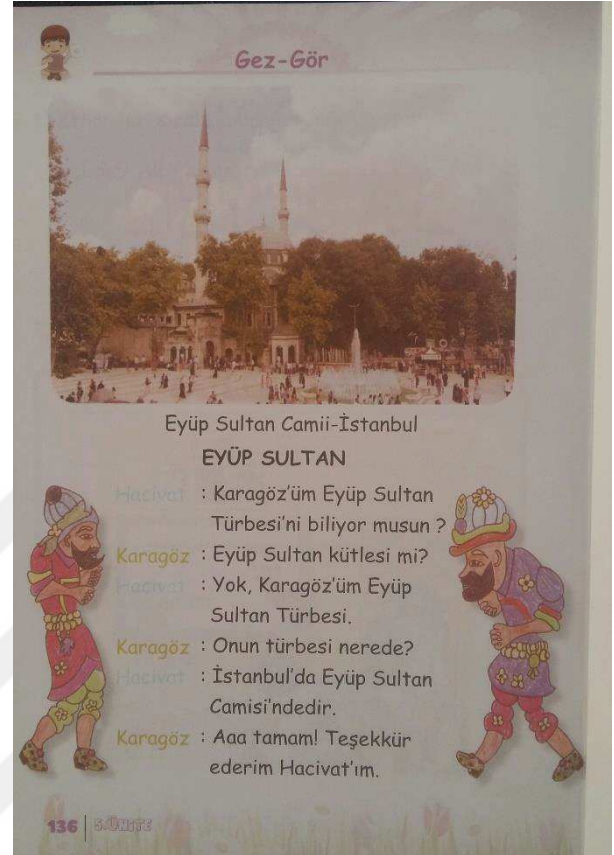 Gez-Gör
Eyüp Sultan Camii-İstanbul
EYÜP SULTAN
Hacivat : Karagöz'üm Eyüp Sultan
Türbesi'ni biliyor musun ?
Karagöz : Eyüp Sultan kütlesi mi?
Hacivat : Yok, Karagöz'üm Eyüp
Sultan Türbesi.
Karagöz : Onun türbesi nerede?
Hacivat : İstanbul'da Eyüp Sultan
Camisi'ndedir.
Karagöz : Aaa tamam! Teşekkür
ederim Hacivat'ım.
136 5.ÜNİTE